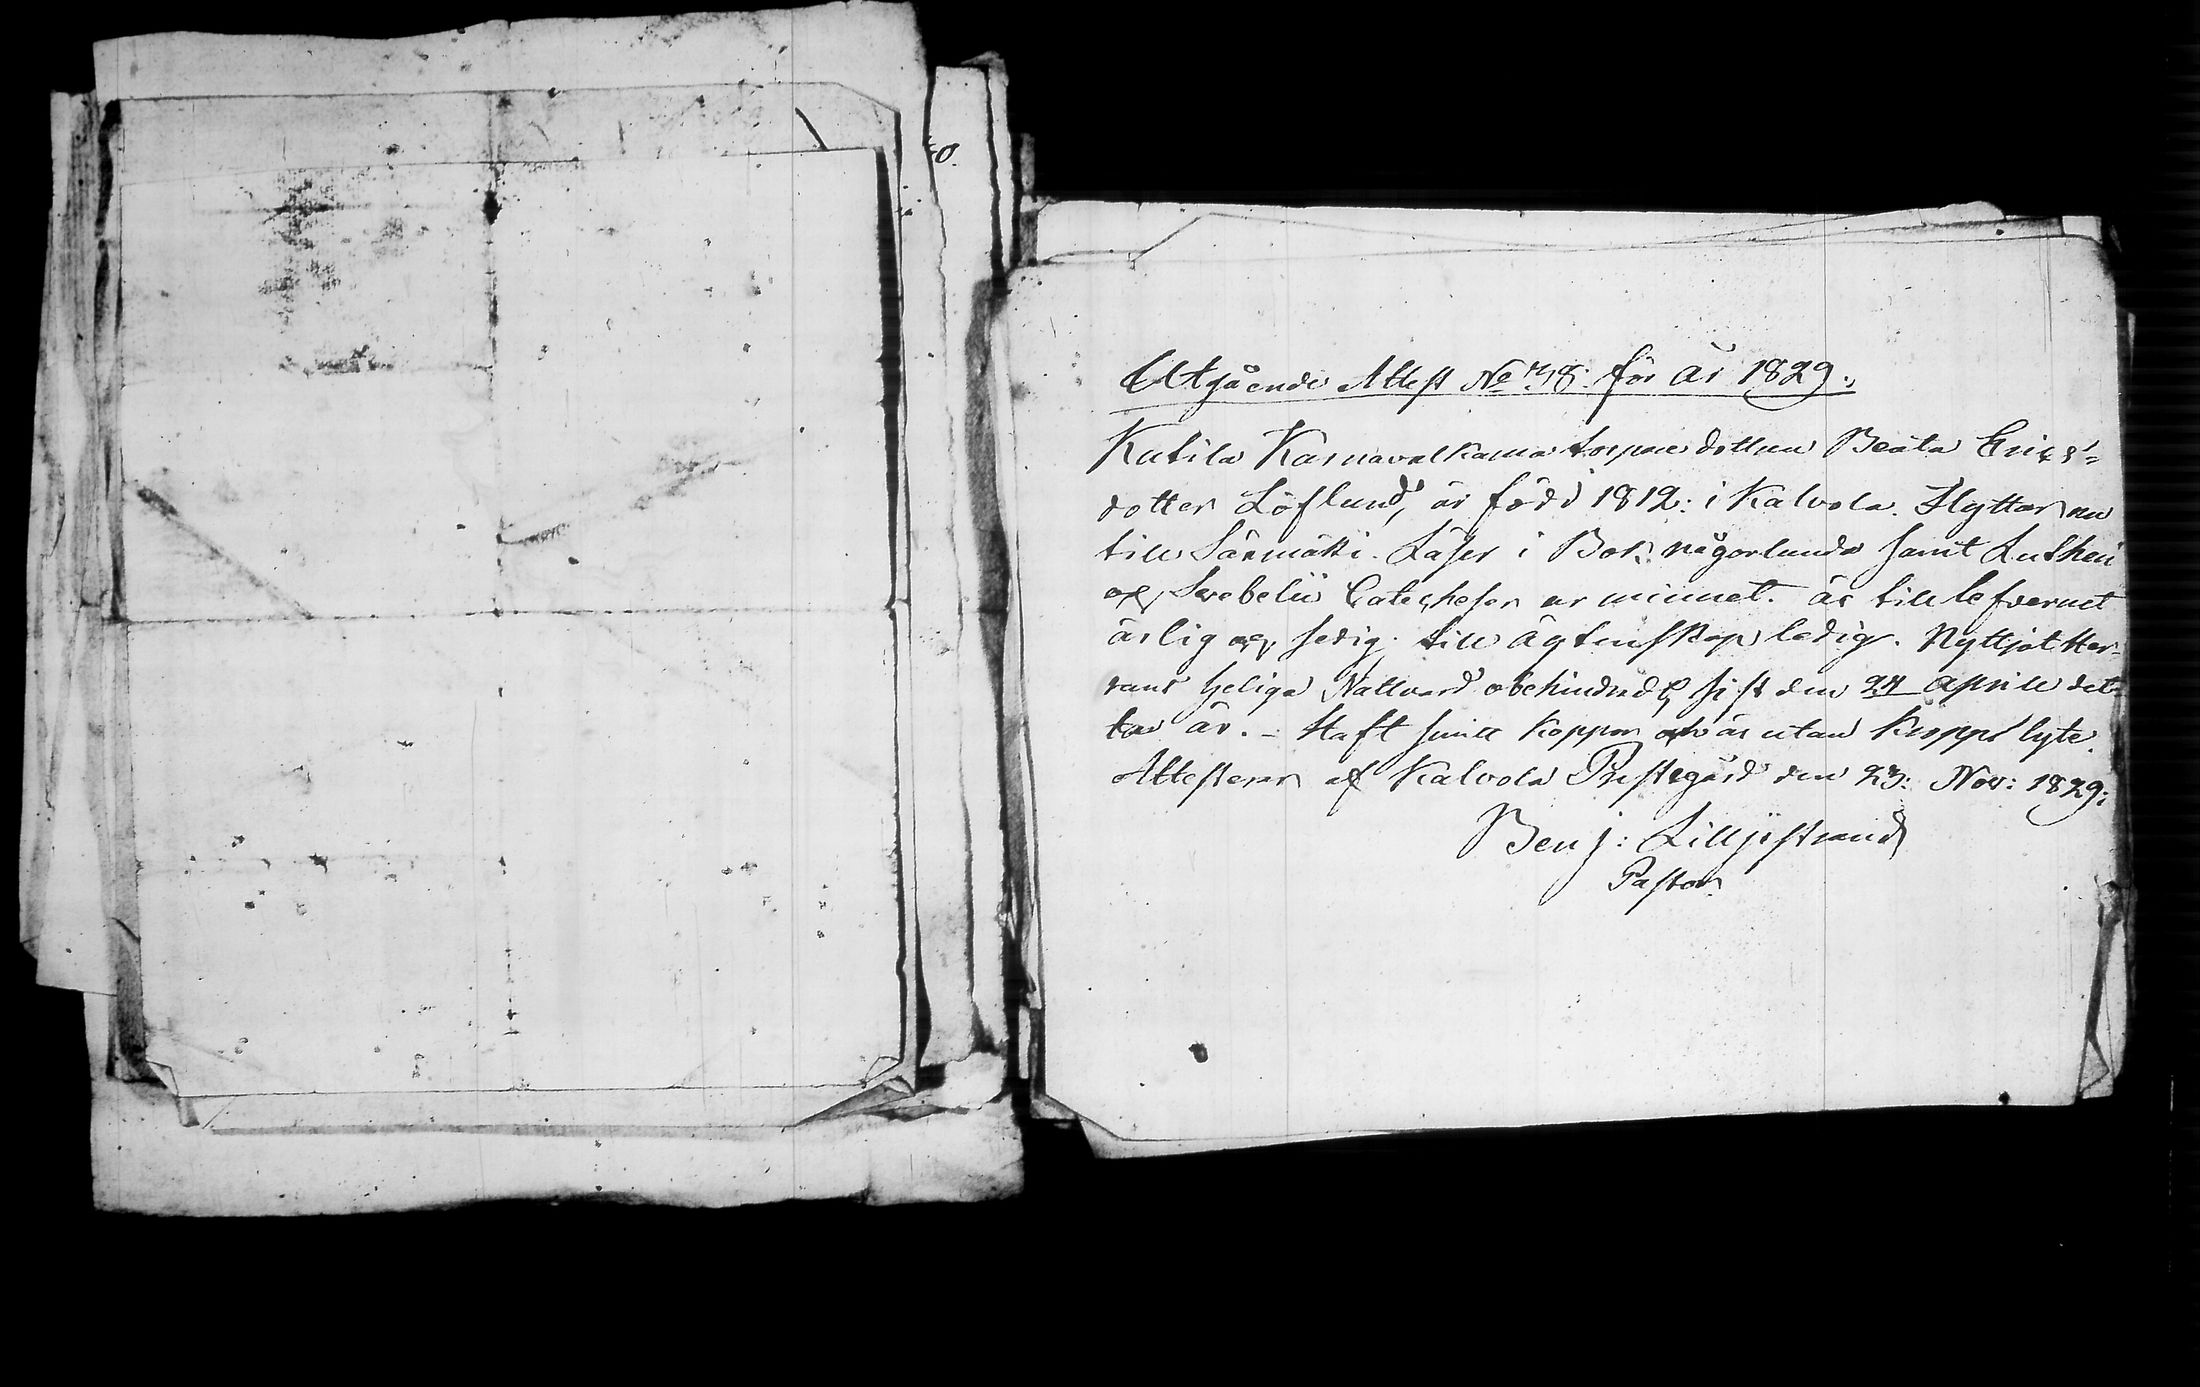 Utgående Attest No 78: för år 1829.
Kutila Karnavalkama torpare dottren Beata Erics=
dotter Löflund, är född 1812: i Kalvola. Flyttar nu
till Säxmäki. Läser i Bok någorlunda samt Lutheri
och Swebelii Catecheser ur minnet. är till lefvernet
ärlig och sedig. till ägtenskap ledig. Nyttjat Her=
rans heliga Nattvard obehindradt, sist den 24 Aprill det=
ta år. - Haft små koppor och är utan kropps lyte.
Attesterar af Kalvola Prestegård den 23: Nov: 1829:
Benj: Lilljestrand
Pastor.